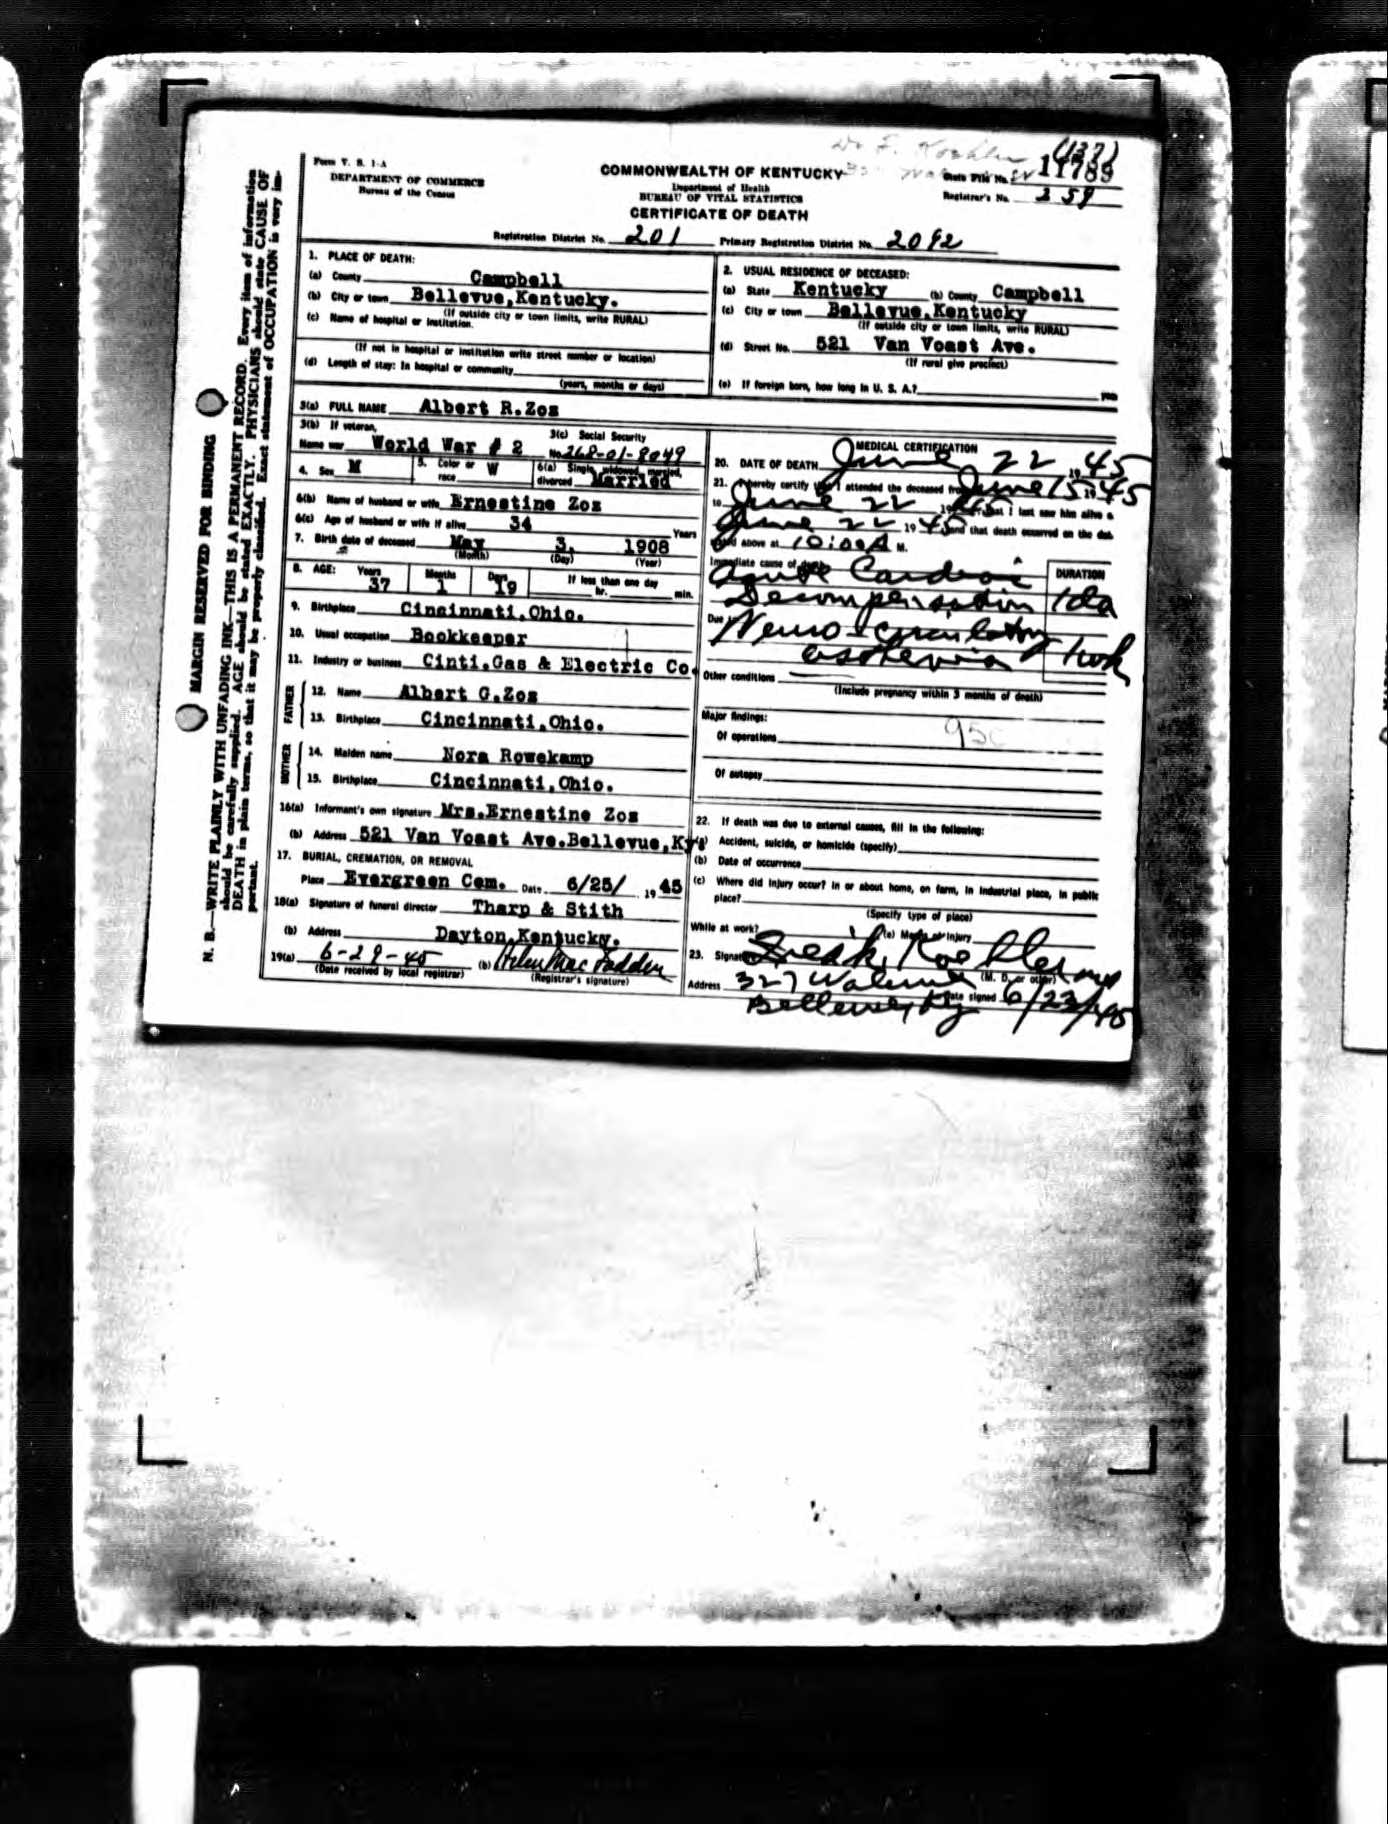 Form V. S. 1-A
DEPARTMENT OF COMMERCE
Bureau of the Census
COMMONWEALTH OF KENTUCKY
Department of Health
BUREAU OF VITAL STATISTICS
CERTIFICATE OF DEATH
Dr F. Koehler (137)
State File No. 11789
Registrar's No. 259
Registration District No. 201 Primary Registration District No. 2092
1. PLACE OF DEATH:
(a) County Campbell
(b) City or town Bellevue,Kentucky.
(If outside city or town limits, write RURAL)
(c) Name of hospital or institution.
(If not in hospital or institution write street number or location)
(d) Length of stay: In hospital or community
(years, months or days)
2. USUAL RESIDENCE OF DECEASED:
(a) State Kentucky (b) County Campbell
(c) City or town Bellevue,Kentucky
(If outside city or town limits, write RURAL)
(d) Street No. 521 Van Voast Ave.
(If rural give precinct)
(e) If foreign born, how long in U. S. A.?
3(a) FULL NAME Albert R.Zos
3(b) If veteran,
Name war World War # 2
3(c) Social Security
No. 268-01-8049
4. Sex M
5. Color or race W
6(a) Single, widowed, married, divorced Married
6(b) Name of husband or wife Ernestine Zos
6(c) Age of husband or wife if alive 34 Years
7. Birth date of deceased May 3, 1908
(Month) (Day) (Year)
8. AGE: Years 37 Months 1 Days 19 If less than one day hr. min.
9. Birthplace Cincinnati,Ohio.
10. Usual occupation Bookkeeper
11. Industry or business Cinti.Gas & Electric Co.
FATHER
12. Name Albert G.Zos
13. Birthplace Cincinnati,Ohio.
MOTHER
14. Maiden name Nora Rowekamp
15. Birthplace Cincinnati,Ohio.
16(a) Informant's own signature Mrs.Ernestine Zos
(b) Address 521 Van Voast Ave.Bellevue,Ky.
17. BURIAL, CREMATION, OR REMOVAL
Place Evergreen Cem. Date 6/25/ 1945
18(a) Signature of funeral director Tharp & Stith
(b) Address Dayton,Kentucky.
19(a) 6-29-45 (b) Helen Mac Fadden
(Date received by local registrar) (Registrar's signature)
MEDICAL CERTIFICATION
20. DATE OF DEATH June 22 1945
21. I hereby certify that I attended the deceased from June 15 1945
to June 22 1945, that I last saw him alive o
June 22 1945 and that death occurred on the dat
stated above at 10:00 A M.
Immediate cause of death DURATION
Acute Cardiac
Decompensation 1 da
Due
Neuro-circulatory
asthenia 1 wk
Other conditions
(Include pregnancy within 3 months of death)
Major findings:
Of operations 95c
Of autopsy
22. If death was due to external causes, fill in the following:
(a) Accident, suicide, or homicide (specify)
(b) Date of occurrence
(c) Where did injury occur? In or about home, on farm, in industrial place, in public
place?
(Specify type of place)
While at work? (e) Means of Injury
23. Signature Koehler MD
(M. D. or other)
Address 327 Walnut Date signed 6/23/45
Bellevue, Ky
MARGIN RESERVED FOR BINDING
N. B.—WRITE PLAINLY WITH UNFADING INK—THIS IS A PERMANENT RECORD. Every item of information
should be carefully supplied. AGE should be stated EXACTLY. PHYSICIANS should state CAUSE OF
DEATH in plain terms, so that it may be properly classified. Exact statement of OCCUPATION is very im-
portant.